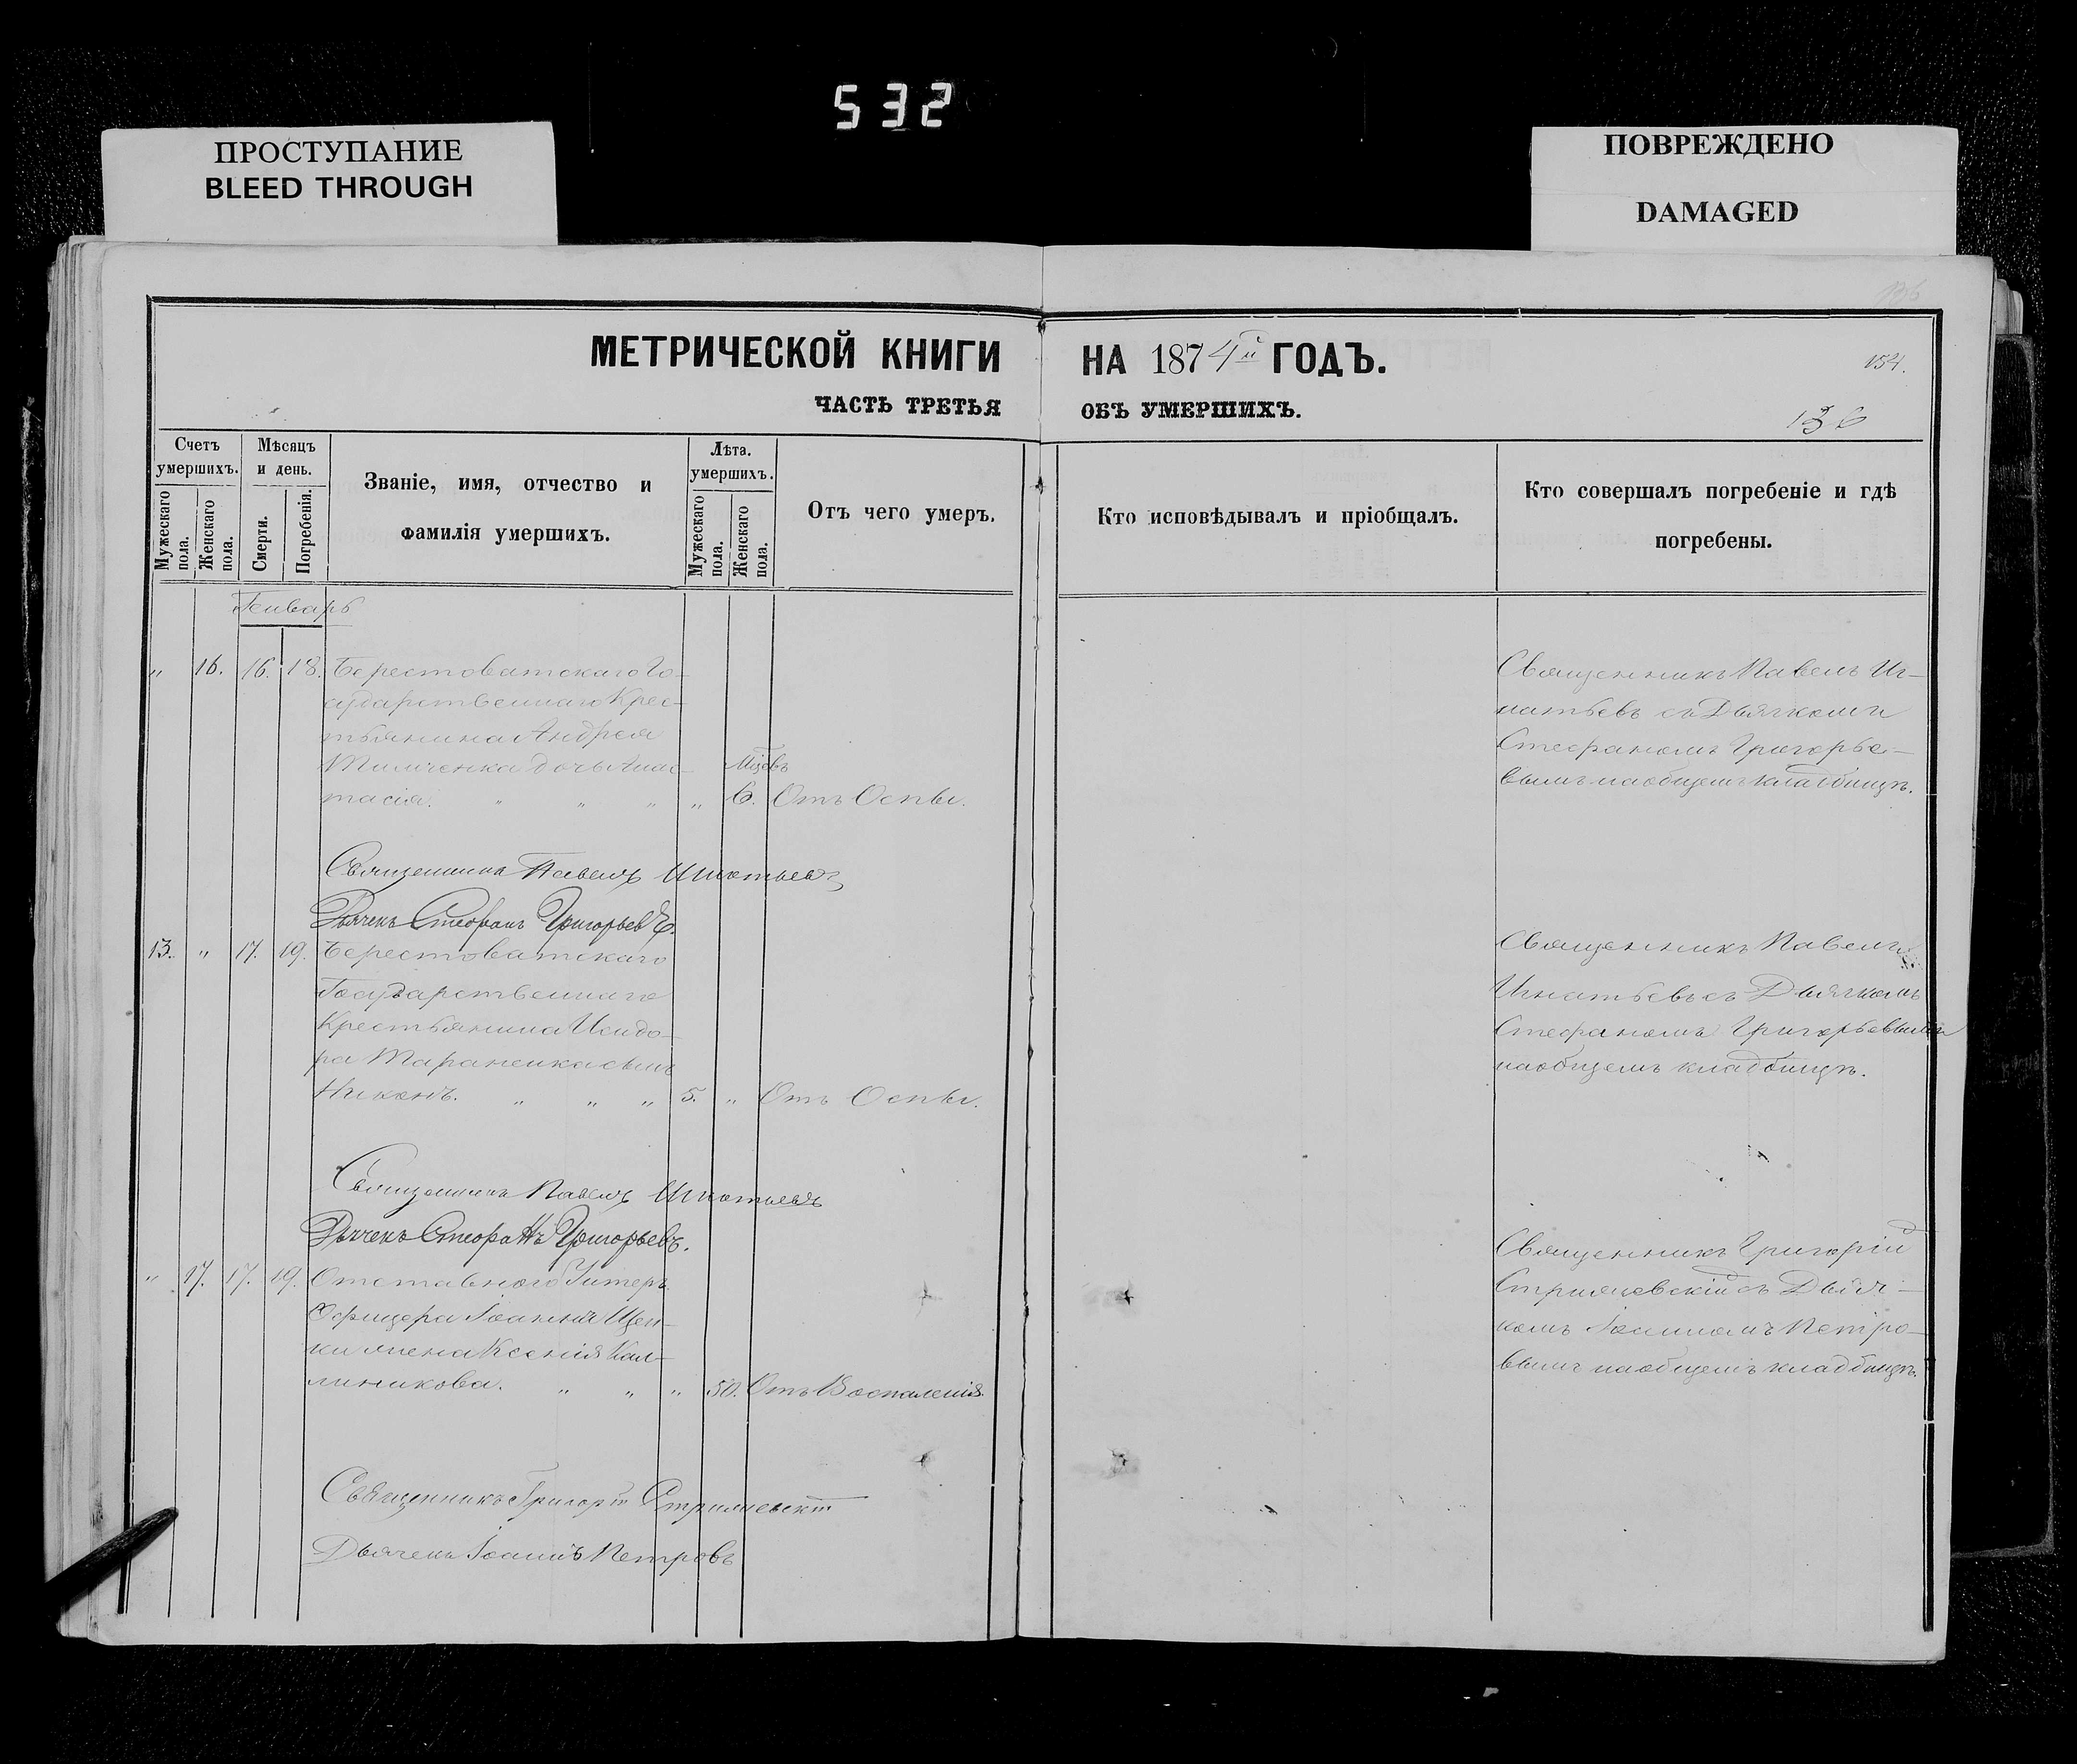 532
ПРОСТУПАНИЕ
BLEED THROUGH
ПОВРЕЖДЕНО
DAMAGED
МЕТРИЧЕСКОЙ КНИГИ НА 1874й ГОДЪ.
154.
ЧАСТЬ ТРЕТЬЯ ОБЪ УМЕРШИХЪ.
136
Счетъ умершихъ.
Мужескаго пола.
Женскаго пола.
Мѣсяцъ и день.
Смерти.
Погребенія.
Званіе, имя, отчество и
фамилія умершихъ.
Лѣта. умершихъ.
Мужескаго пола.
Женскаго пола.
Отъ чего умеръ.
Кто исповѣдывалъ и пріобщалъ.
Кто совершалъ погребеніе и гдѣ
погребены.
Генварь
" 16. 16. 18. Берестоватскаго Го-
сударственнаго Крес-
тьянина Андрея
дочь Анас-
тасія. " " " " Мцѣвъ 6. Отъ Оспы.
Священникъ Павелъ Иг-
натьевъ съ Дьячкомъ
Стефаномъ Григорье-
вымъ на общемъ кладбищѣ.
Священникъ Павелъ Игнатьевъ
Дьячекъ Стефанъ Григорьевъ.
13. " 17. 19. Берестоватскаго
Государственнаго
Крестьянина Исидо-
ра Тараненка сынъ
Никонъ. " " " 5. " Отъ Оспы.
Священникъ Павелъ
Игнатьевъ съ Дьячкомъ
Стефаномъ Григорьевымъ
на общемъ кладбищѣ.
Священникъ Павелъ Игнатьевъ
Дьячекъ Стефанъ Григорьевъ.
" 17. 17. 19. Отставнаго Унтеръ
Офицера Іоанна Щен-
ки жена Ксенія Кал-
линикова. " " " 50. Отъ Воспаленія
Священникъ Григорій
съ Дьяч-
комъ Іоанномъ Петро-
вымъ на общемъ кладбищѣ.
Священникъ Григорій
Дьячекъ Іоаннъ Петровъ